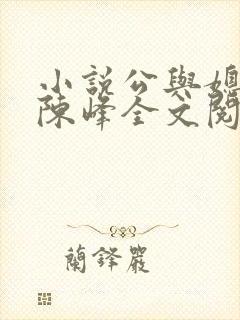 小說公與媳
陳峰全文閱
蘭鋒嚴